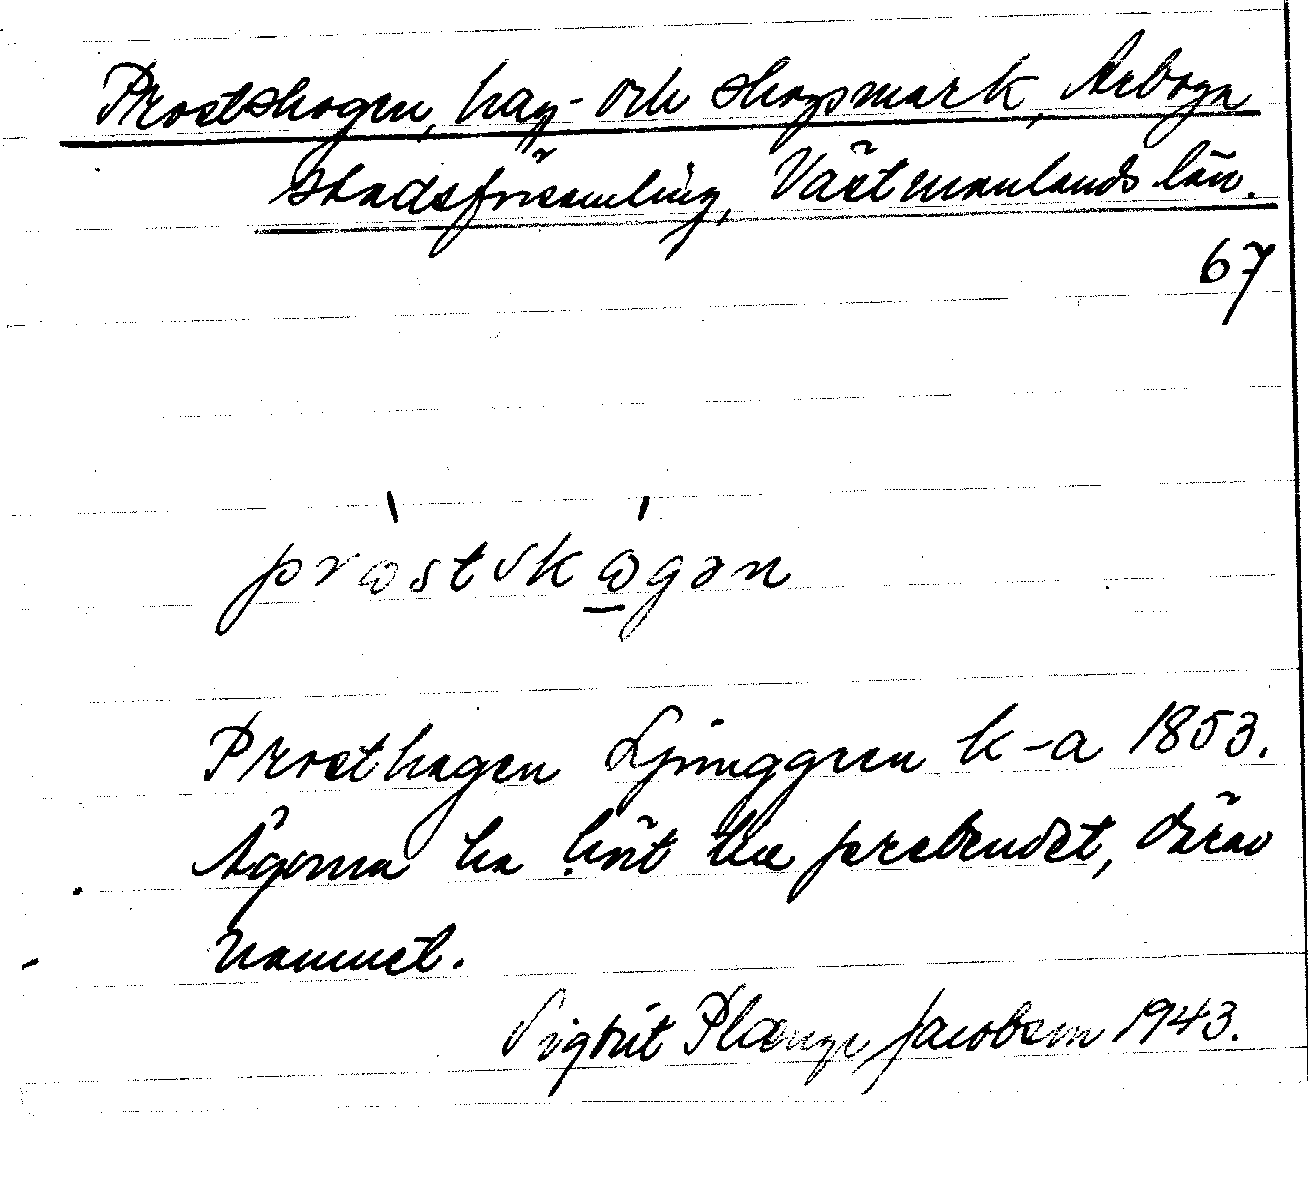 Prostskogen, hag- och skogsmark, Arboga
stadsförsamling, Västmanlands län.
67
pròstskǫ́gən
Prosthagen Ljunggren k-a 1853.
Ägorna ha hört till prebendet, därav
namnet.
Sigbrit Plænge Jacobson 1943.